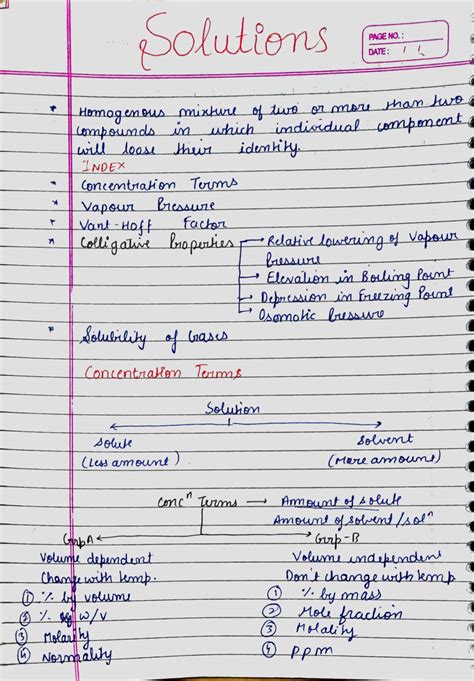 Solutions
PAGE NO.:
DATE:
* Homogenous mixture of two or more than two
compounds in which individual component
will loose their identity.
INDEX
* Concentration Terms
* Vapour Pressure
* Vant-Hoff Factor
* Colligative Properties → Relative lowering of Vapour
Pressure
→ Elevation in Boiling Point
→ Depression in Freezing Point
→ Osomotic Pressure
* Solubility of Gases
Concentration Terms
Solution
Solute Solvent
(Less amount) (More amount)
Concⁿ Terms → Amount of solute
Amount of solvent/solⁿ
Grp A Grp-B
Volume dependent Volume independent
Change with temp. Don't change with temp
① % by volume ① % by mass
② % w/v ② Mole fraction
③ Molarity ③ Molality
④ Normality ④ ppm